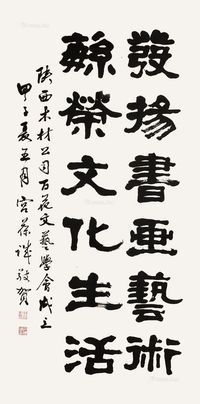 發揚書画藝術
繁榮文化生活
陕西木材公司百花文藝學會成立
甲子夏五月宫葆诚敬贺